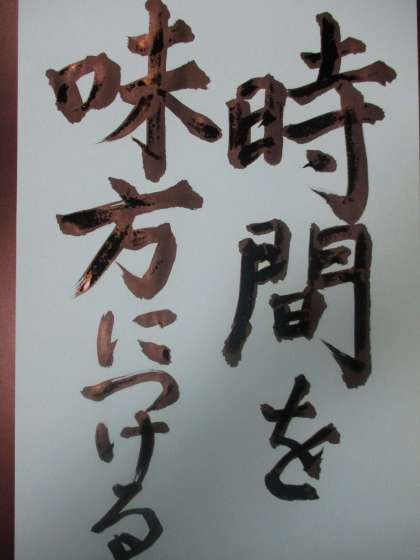 時間を
味方につける